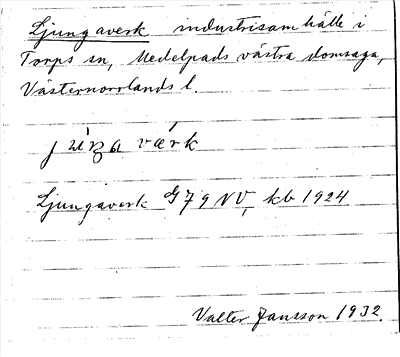 Ljungaverk industrisamhälle i
Torps sn, Medelpads västra domsaga,
Västernorrlands l.
värk
Ljungaverk G79NV, kb 1924
Valter Jansson 1932.